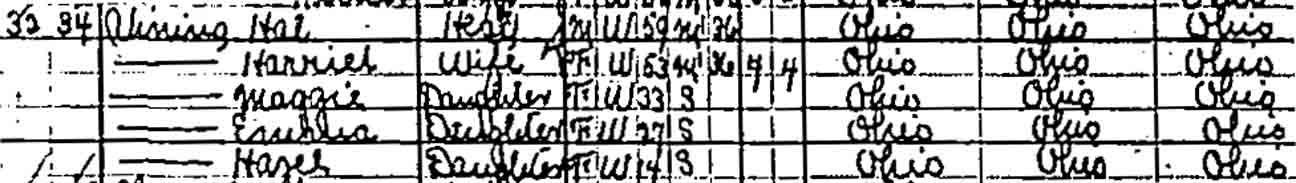 32 34 Vining Hal Head M W 59 M 36 Ohio Ohio Ohio
Harriet Wife F W 53 M 36 4 4 Ohio Ohio Ohio
Maggie Daughter F W 33 S Ohio Ohio Ohio
Daughter F W 27 S Ohio Ohio Ohio
Hazel Daughter F W 14 S Ohio Ohio Ohio